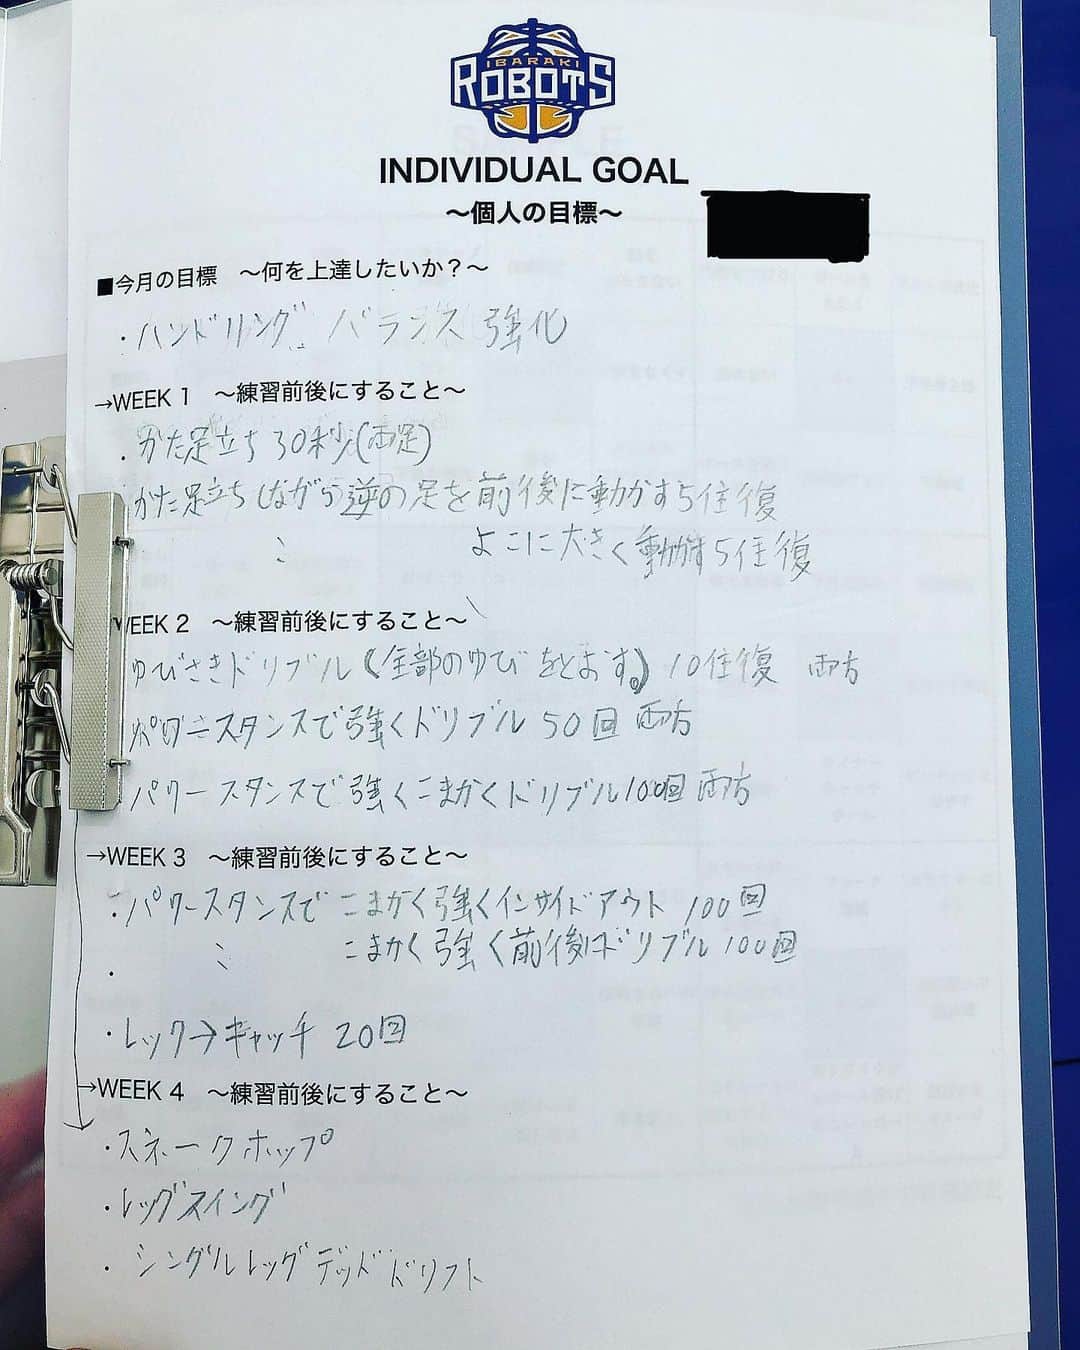 IBARAKI
ROBOTS
INDIVIDUAL GOAL
〜個人の目標〜
■今月の目標　〜何を上達したいか？〜
・ハンドリング バランス 強化
→WEEK 1　〜練習前後にすること〜
・かた足立ち 30秒(両足)
かた足立ちしながら逆の足を前後に動かす5住復
〃 よこに大きく動かす5住復
WEEK 2　〜練習前後にすること〜
ゆびさきドリブル(全部のゆびをとおす。) 10住復 両方
パワースタンスで強くドリブル 50回 両方
パワースタンスで強くこまかくドリブル100回 両方
→WEEK 3　〜練習前後にすること〜
・パワースタンスで こまかく強くインサイドアウト 100回
〃 こまかく強く前後にドリブル100回
・
・レック→キャッチ 20回
→WEEK 4　〜練習前後にすること〜
・スネークホップ
・レッグスイング
・シングルレッグデッド